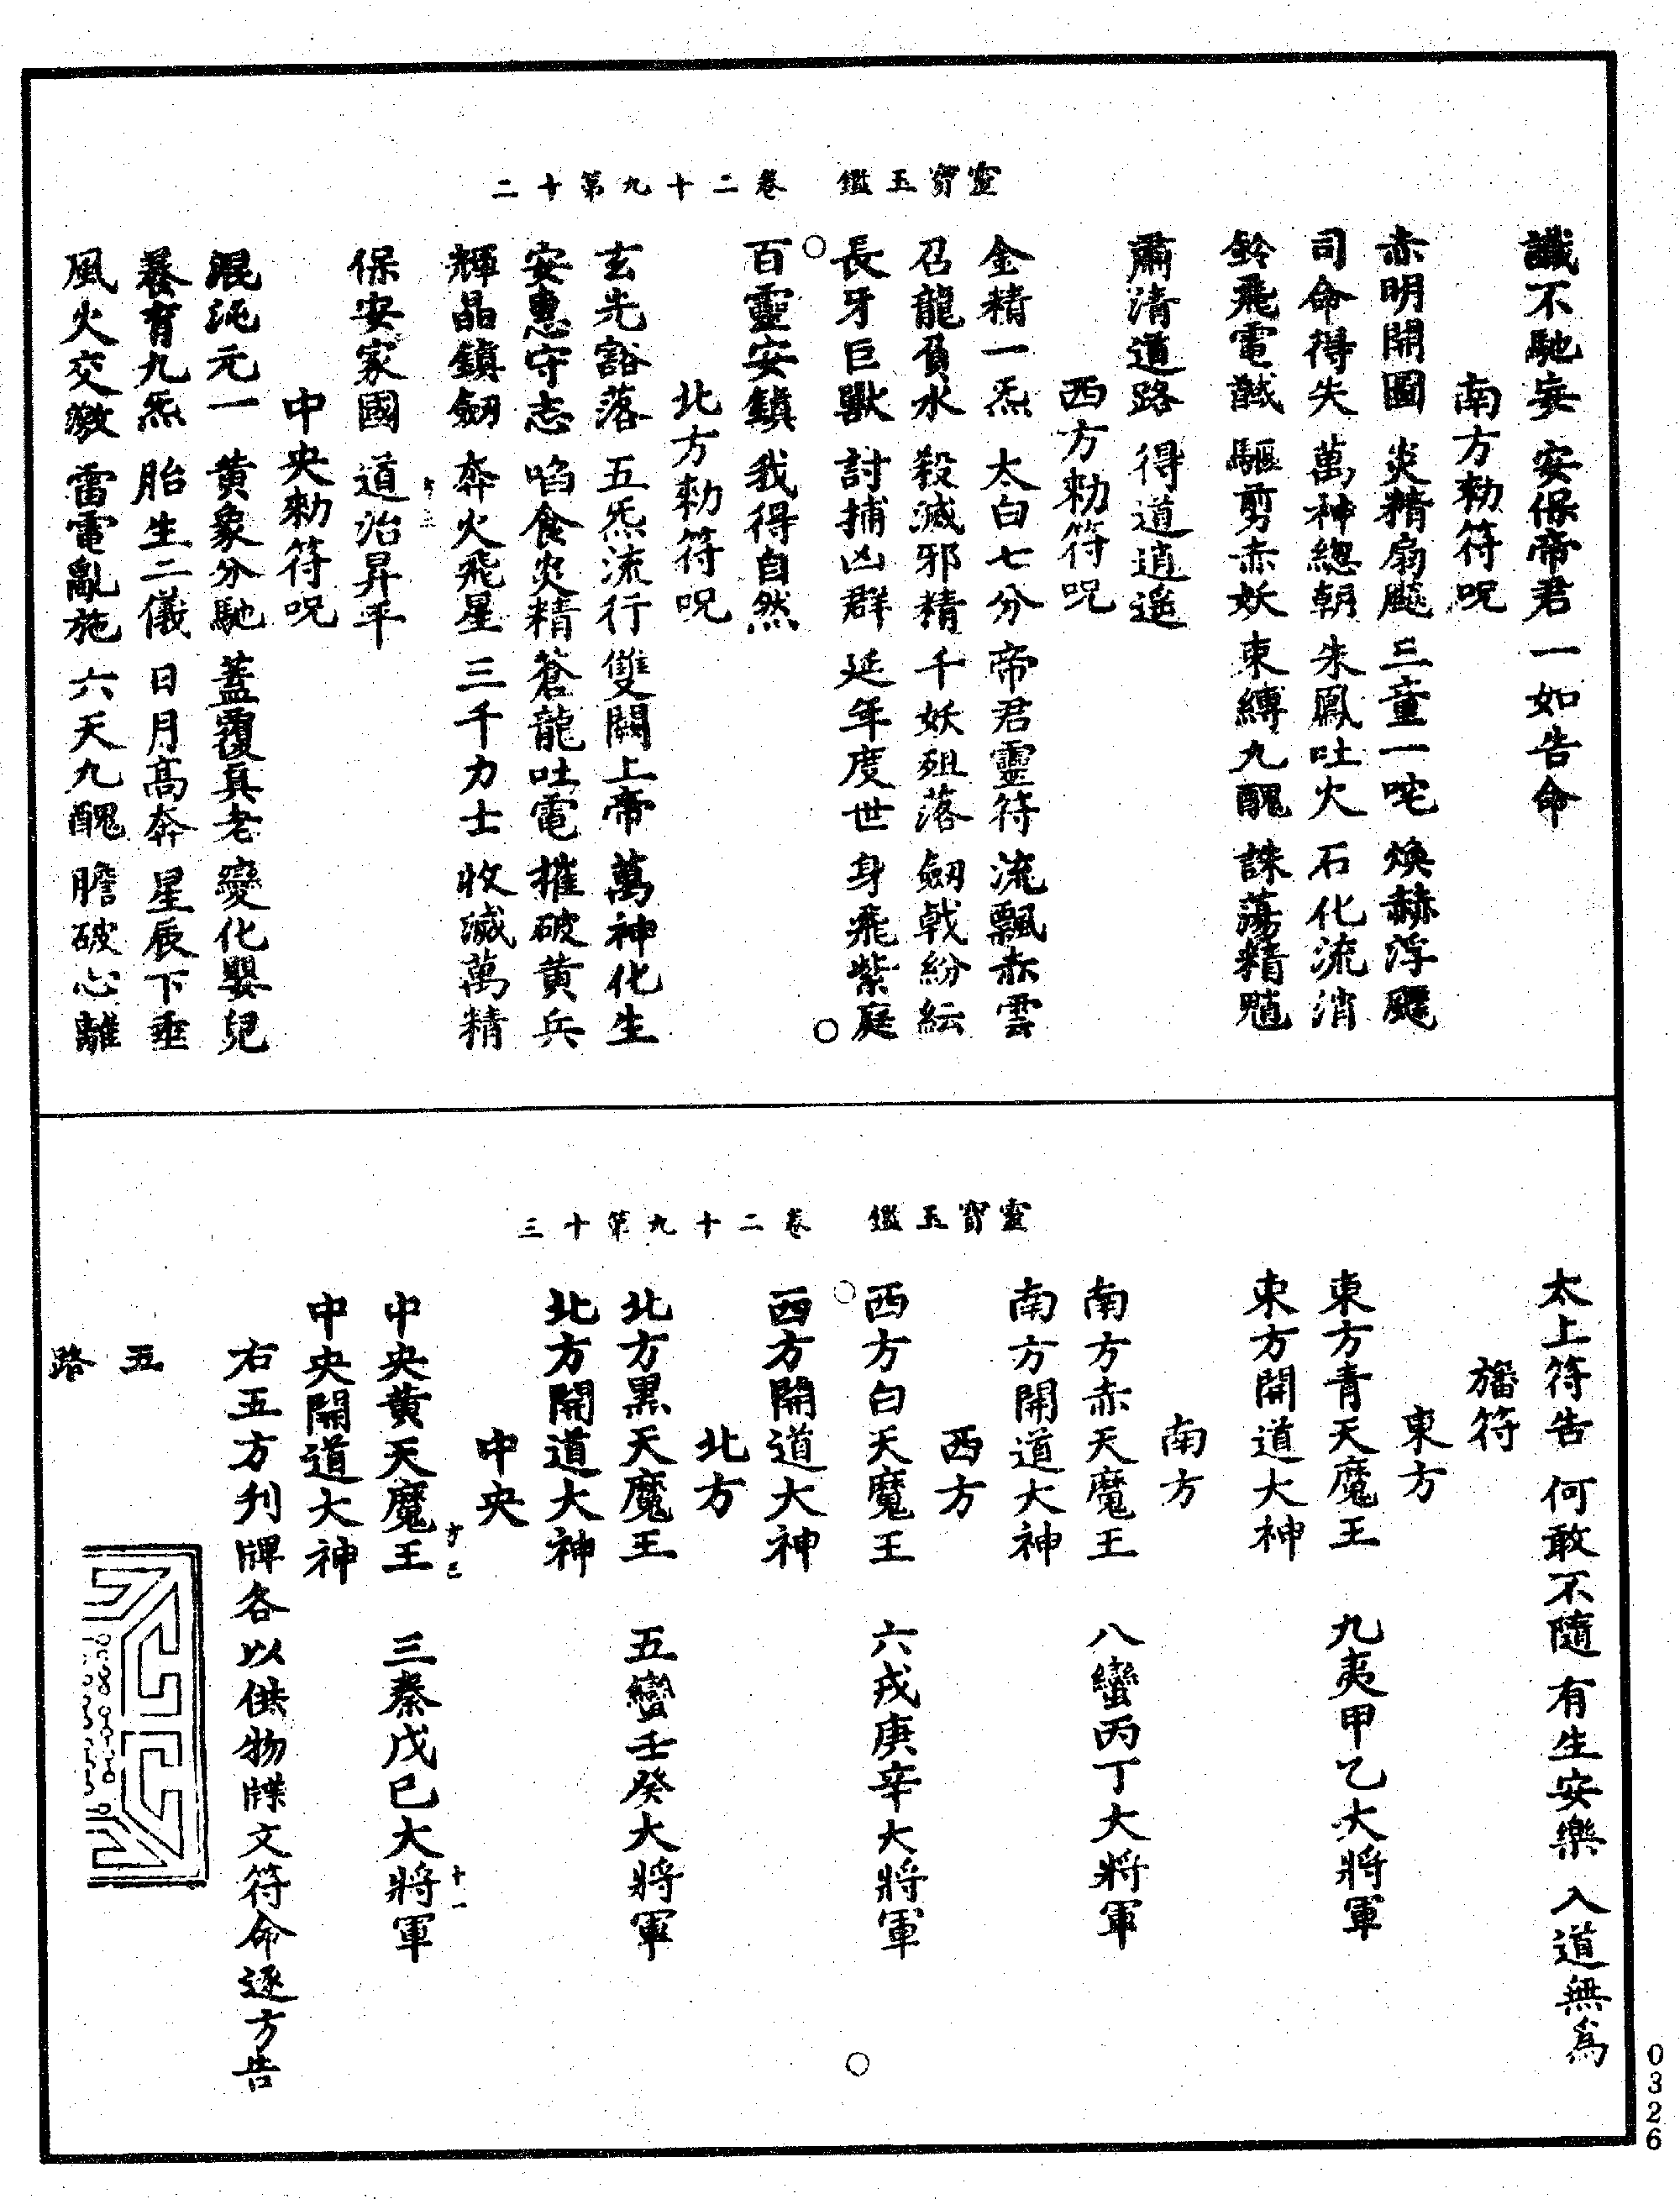 靈寶玉鑑 卷二十九第十二
讖不馳妄 安保帝君 一如告命
南方勑符呪
赤明開圖 炎精扇飈 三童一咤 煥赫浮飈
司命得失 萬神總朝 朱鳳吐火 石化流消
鈴飛電馘 驅剪赤妖 束縛九醜 誅蕩精魈
肅清道路 得道逍遙
西方勑符呪
金精一炁 太白七分 帝君靈符 流飄赤雲
召龍負水 殺滅邪精 千妖殂落 劒戟紛紜
長牙巨獸 討捕凶群 延年度世 身飛紫庭
百靈安鎮 我得自然
北方勑符呪
玄光豁落 五炁流行 雙闕上帝 萬神化生
安惠守志 啗食炎精 蒼龍吐電 摧破黃兵
輝晶鎮劒 奔火飛星 三千力士 收滅萬精
保安家國 道治昇平
中央勑符呪
混沌元一 黃象分馳 蓋覆真老 變化嬰兒
養育九炁 胎生二儀 日月高奔 星辰下垂
風火交激 雷電亂施 六天九醜 膽破心離
靈寶玉鑑 卷二十九第十三
太上符告 何敢不隨 有生安樂 入道無為
旛符
東方
東方青天魔王 九夷甲乙大將軍
東方開道大神
南方
南方赤天魔王 八蠻丙丁大將軍
南方開道大神
西方
西方白天魔王 六戎庚辛大將軍
西方開道大神
北方
北方黑天魔王 五蠻壬癸大將軍
北方開道大神
中央
中央黃天魔王 三秦戊巳大將軍
十一
中央開道大神
右五方列牌各以供物牒文符命逐方告
五
路
0326